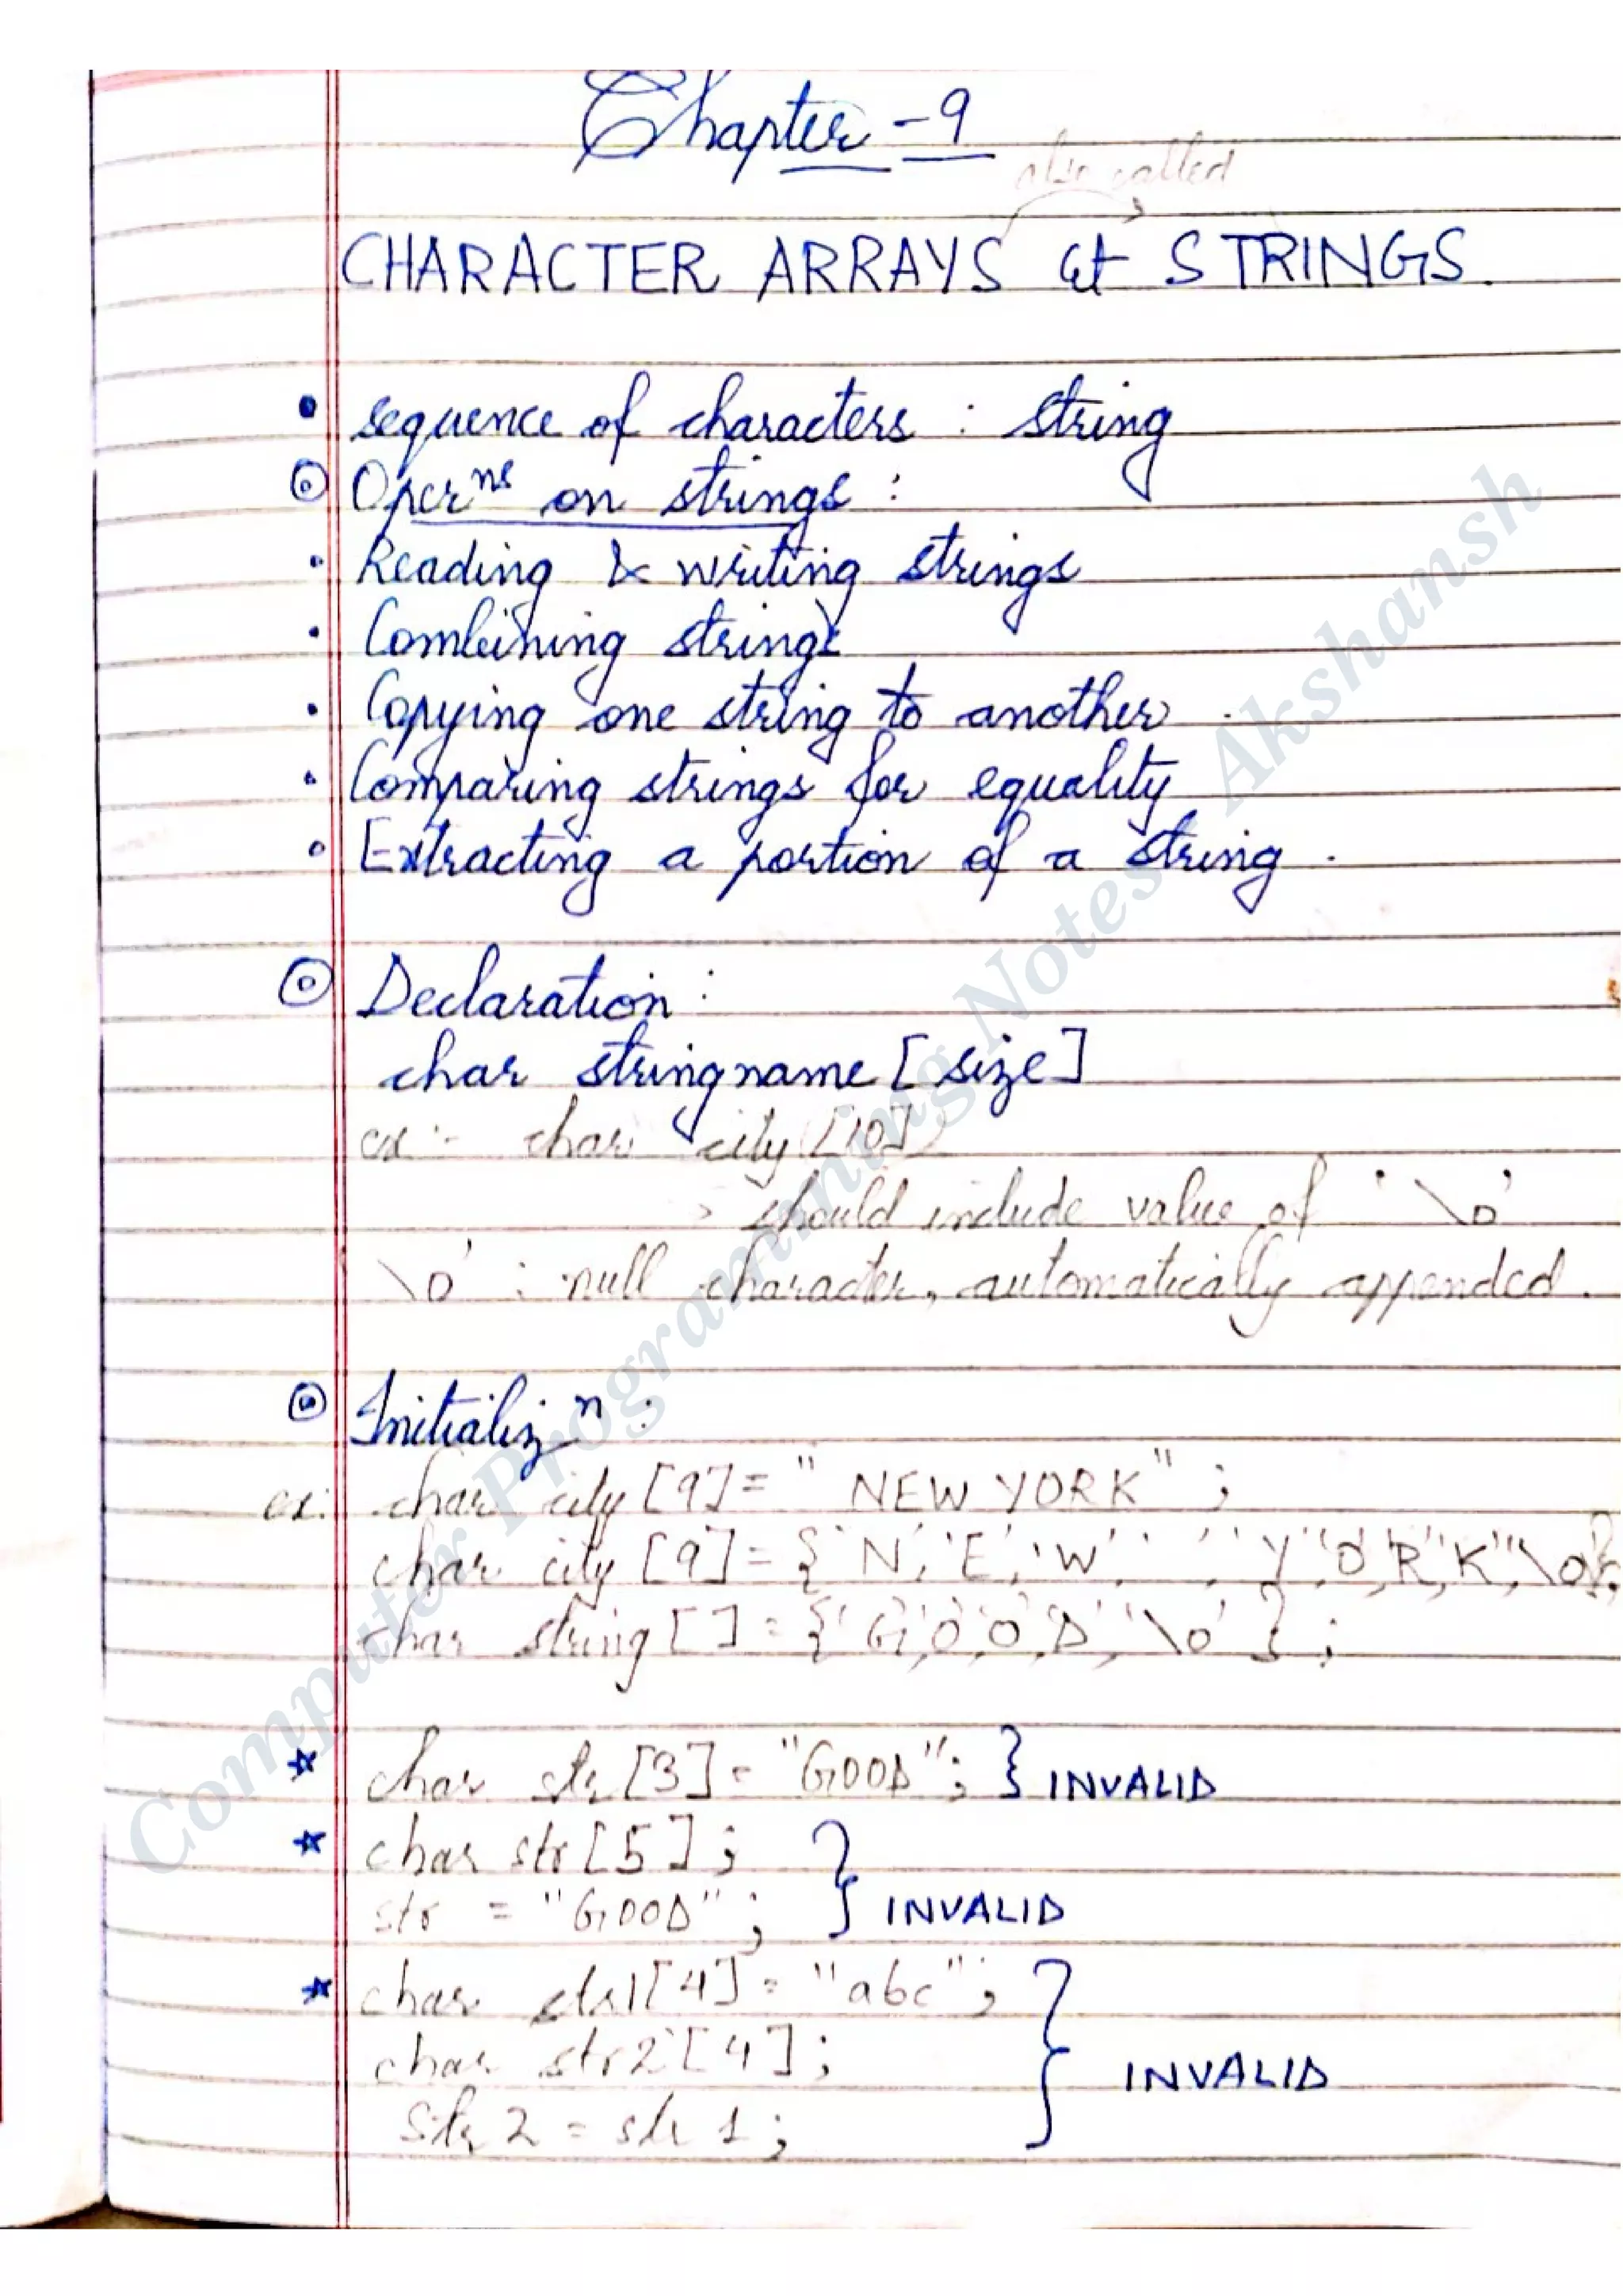 Chapter - 9
also called
CHARACTER ARRAYS & STRINGS.
• sequence of characters : string
⊙ Operⁿˢ on strings :
• Reading & writing strings
• Combining strings
• Copying one string to another
• Comparing strings for equality
• Extracting a portion of a string .
⊙ Declaration :
char stringname [size]
ex :- char city [10]
> should include value of '\0'
'\0' : null character, automatically appended.
⊙ Initializⁿ :
ex: char city [9] = "NEW YORK" ;
char city [9] = {'N','E','W',' ','Y','O','R','K','\0'};
char string [ ] = {'G','O','O','D','\0'} ;
★ char str [3] = "GOOD"; } INVALID
★ char str [5] ;
str = "GOOD" ; } INVALID
★ char str1[4] = "abc" ;
char str2[4] ; } INVALID
Str 2 = str 1 ;
Computer Programming Notes - Akshansh